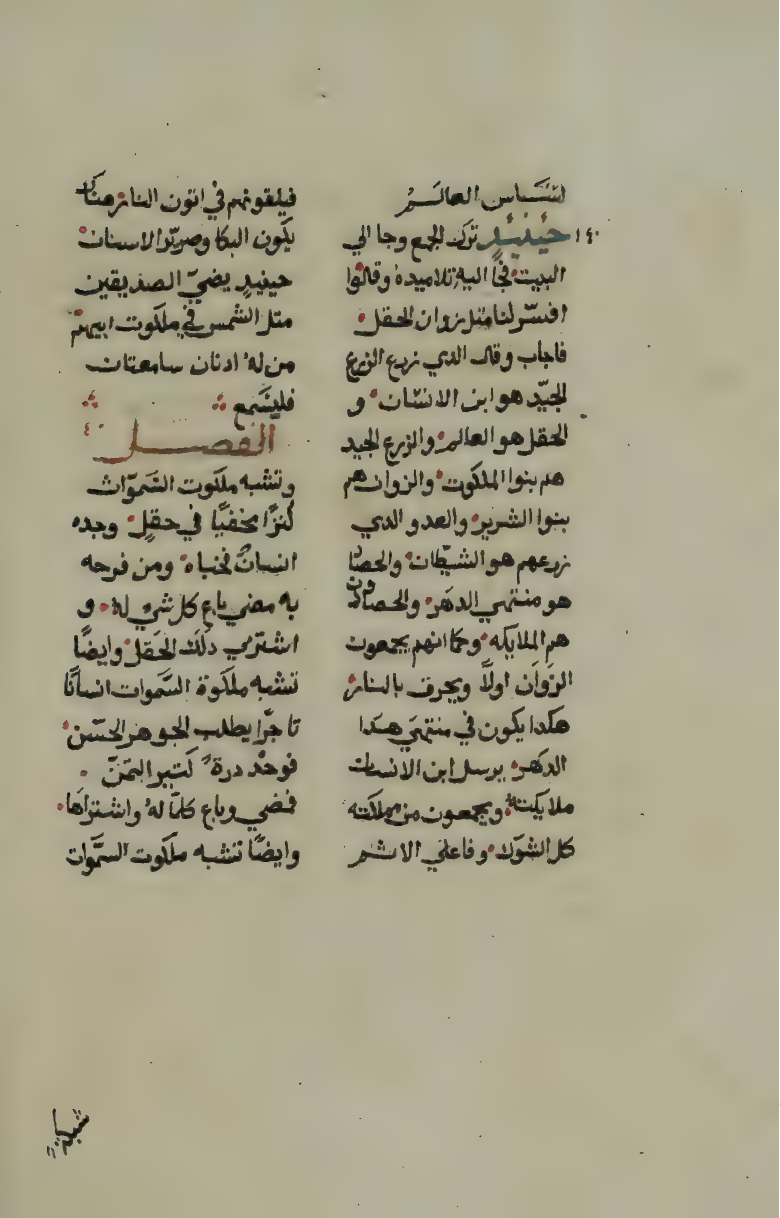 لتساس العالم
١٤٠ حينيدٍ ترك الجمع وجا الي
البيت فجا اليه تلاميده وقالوا
افسّر لنا مثل زوان الحقل
فاجاب وقال الدي زرع الزرع
الجيّد هو ابن الانسان و
الحقل هو العالم والزرع الجيد
هم بنوا الملكوت والزوان هم
بنوا الشرير والعدو الدي
زرعهم هو الشيطان والحصاد
هو منتهي الدهر والحصادون
هم الملايكه وكما انهم يجمعون
الزوان اولاً ويحرق بالنار
هكدا يكون في منتهي هدا
الدهر يرسل ابن الانسان
ملايكته ويجمعون من مملكته
كل الشوك وفاعلي الاثم
فيلقونهم في اتون النار هناك
يكون البكا وصرير الاسنان
حينيدٍ يضيّ الصديقين
متل الشمس في ملكوت ابيهم
من له ادنان سامعتان
فليسمع
الفصل ٤٠
وتشبه ملكوت السّموات
كنزًا مخفيًا في حقلٍ وجده
انسانٌ فخباه ومن فرحه
به مضي باع كل شيء له و
اشتري دلك الحقل وايضًا
تشبه ملكوة السّموات انسانًا
تاجرًا يطلب الجوهر الحسن
فوجد درة كتير التمنّ
فمضي وباع كلّما له واشتراها
وايضًا تشبه ملكوت السّموات
شبكة